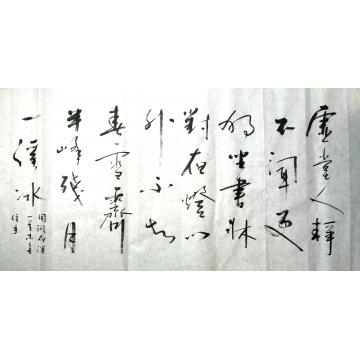 虛堂人靜
不聞更
獨坐書牀
對夜燈門
外不知
春雪霽
半峰殘月
一溪冰
周弼夜深